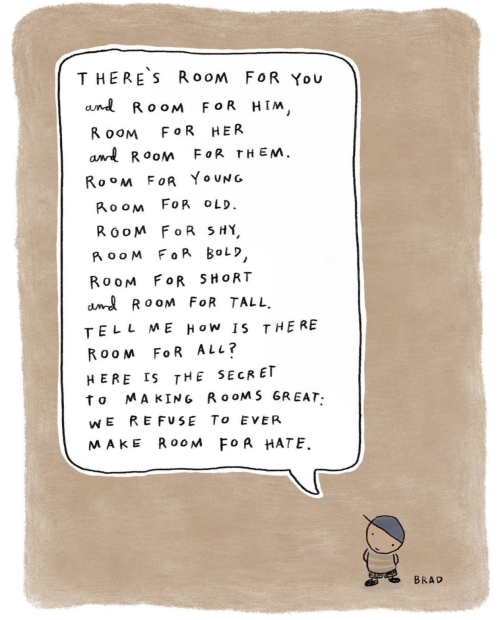 THERE'S ROOM FOR YOU
and ROOM FOR HIM,
ROOM FOR HER
and ROOM FOR THEM.
ROOM FOR YOUNG
ROOM FOR OLD.
ROOM FOR SHY,
ROOM FOR BOLD,
ROOM FOR SHORT
and ROOM FOR TALL.
TELL ME HOW IS THERE
ROOM FOR ALL?
HERE IS THE SECRET
TO MAKING ROOMS GREAT:
WE REFUSE TO EVER
MAKE ROOM FOR HATE.
BRAD